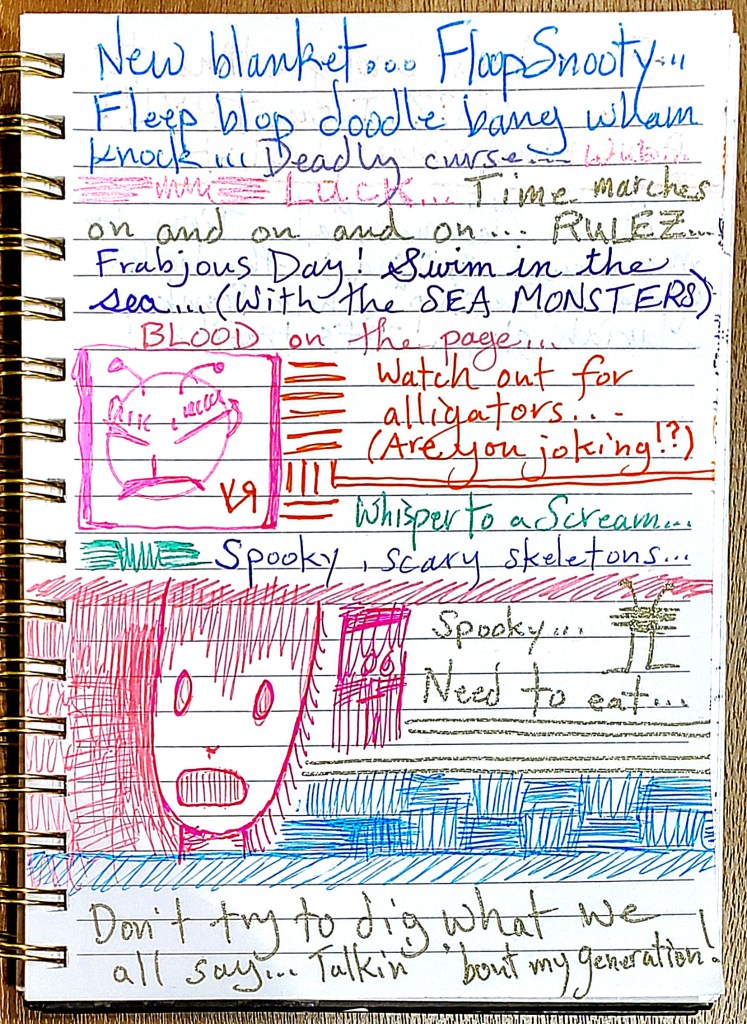 New blanket... FloopSnooty...
Fleep blop doodle bang wham
knock... Deadly curse... Wub...
Luck... Time marches
on and on and on... RULEZ...
Frabjous Day! Swim in the
sea... (With the SEA MONSTERS)
BLOOD on the page...
Watch out for
alligators...
(Are you joking!?)
Whisper to a Scream...
Spooky, scary skeletons...
Spooky...
Need to eat...
Don't try to dig what we
all say... Talkin' 'bout my generation!